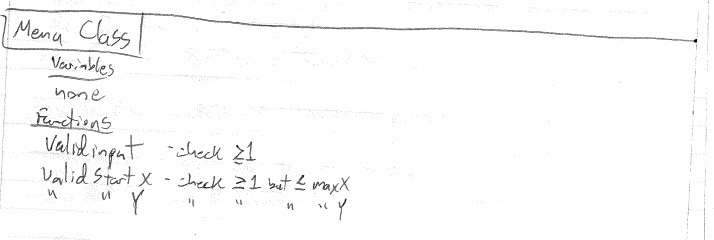 Menu Class
Variables
none
Functions
validinput - check ≥1
validStartX - check ≥1 but ≤ maxX
" " Y " " " " Y